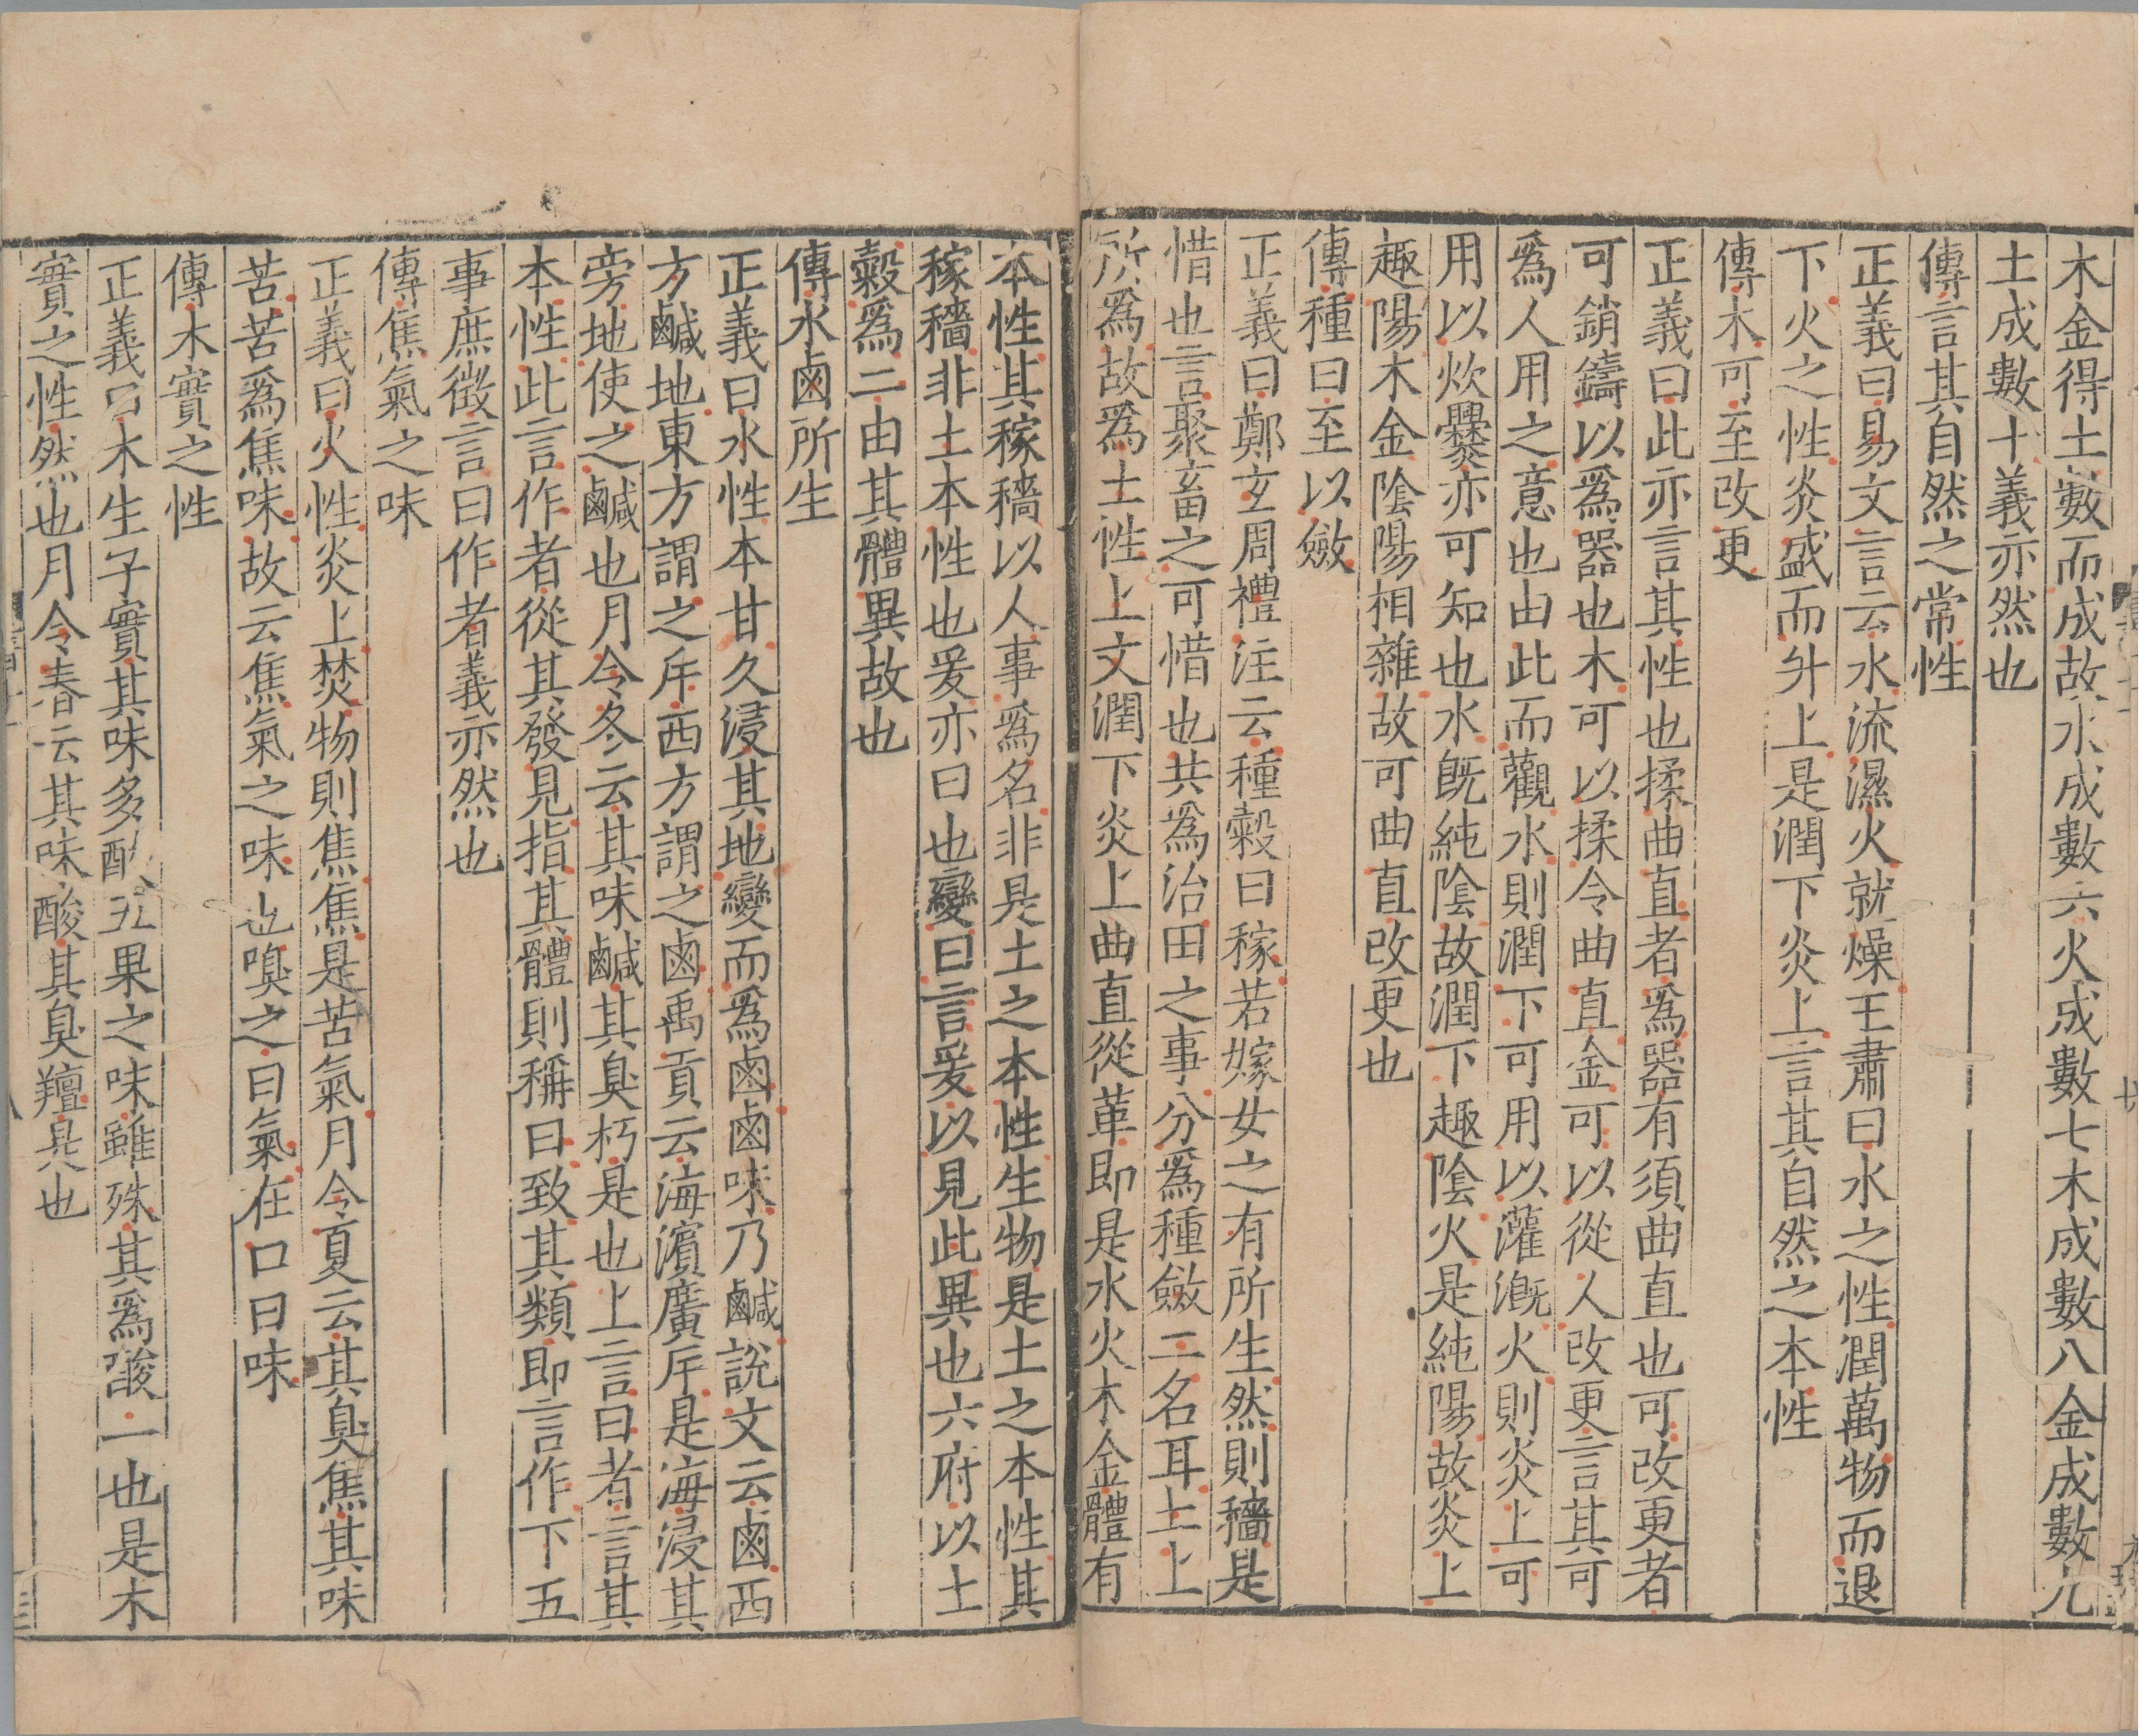 木金得土數而成故水成數六火成數七木成數八金成數九
土成數十義亦然也
傳言其自然之常性
正義曰易文言云水流濕火就燥王肅曰水之性潤萬物而退
下火之性炎盛而升上是潤下炎上言其自然之本性
傳木可至改更
正義曰此亦言其性也揉曲直者爲器有須曲直也可改更者
可銷鑄以爲器也木可以揉令曲直金可以從人改更言其可
爲人用之意也由此而觀水則潤下可用以灌溉火則炎上可
用以炊爨亦可知也水旣純陰故潤下趣陰火是純陽故炎上
趣陽木金陰陽相雜故可曲直改更也
傳種曰至以斂
正義曰鄭玄周禮注云種穀曰稼若嫁女之有所生然則穡是
惜也言聚畜之可惜也共爲治田之事分爲種斂二名耳土上
所爲故爲土性上文潤下炎上曲直從革即是水火木金體有
本性其稼穡以人事爲名非是土之本性生物是土之本性其
稼穡非土本性也爰亦曰也變曰言爰以見此異也六府以土
穀爲二由其體異故也
傳水鹵所生
正義曰水性本甘久浸其地變而爲鹵鹵味乃鹹說文云鹵西
方鹹地東方謂之斥西方謂之鹵禹貢云海濱廣斥是海浸其
旁地使之鹹也月令冬云其味鹹其臭朽是也上言曰者言其
本性此言作者從其發見指其體則稱曰致其類即言作下五
事庶徵言曰作者義亦然也
傳焦氣之味
正義曰火性炎上焚物則焦焦是苦氣月令夏云其臭焦其味
苦苦爲焦味故云焦氣之味也嗅之曰氣在口曰味
傳木實之性
正義曰木生子實其味多酸五果之味雖殊其爲酸一也是木
實之性然也月令春云其味酸其臭羶是也